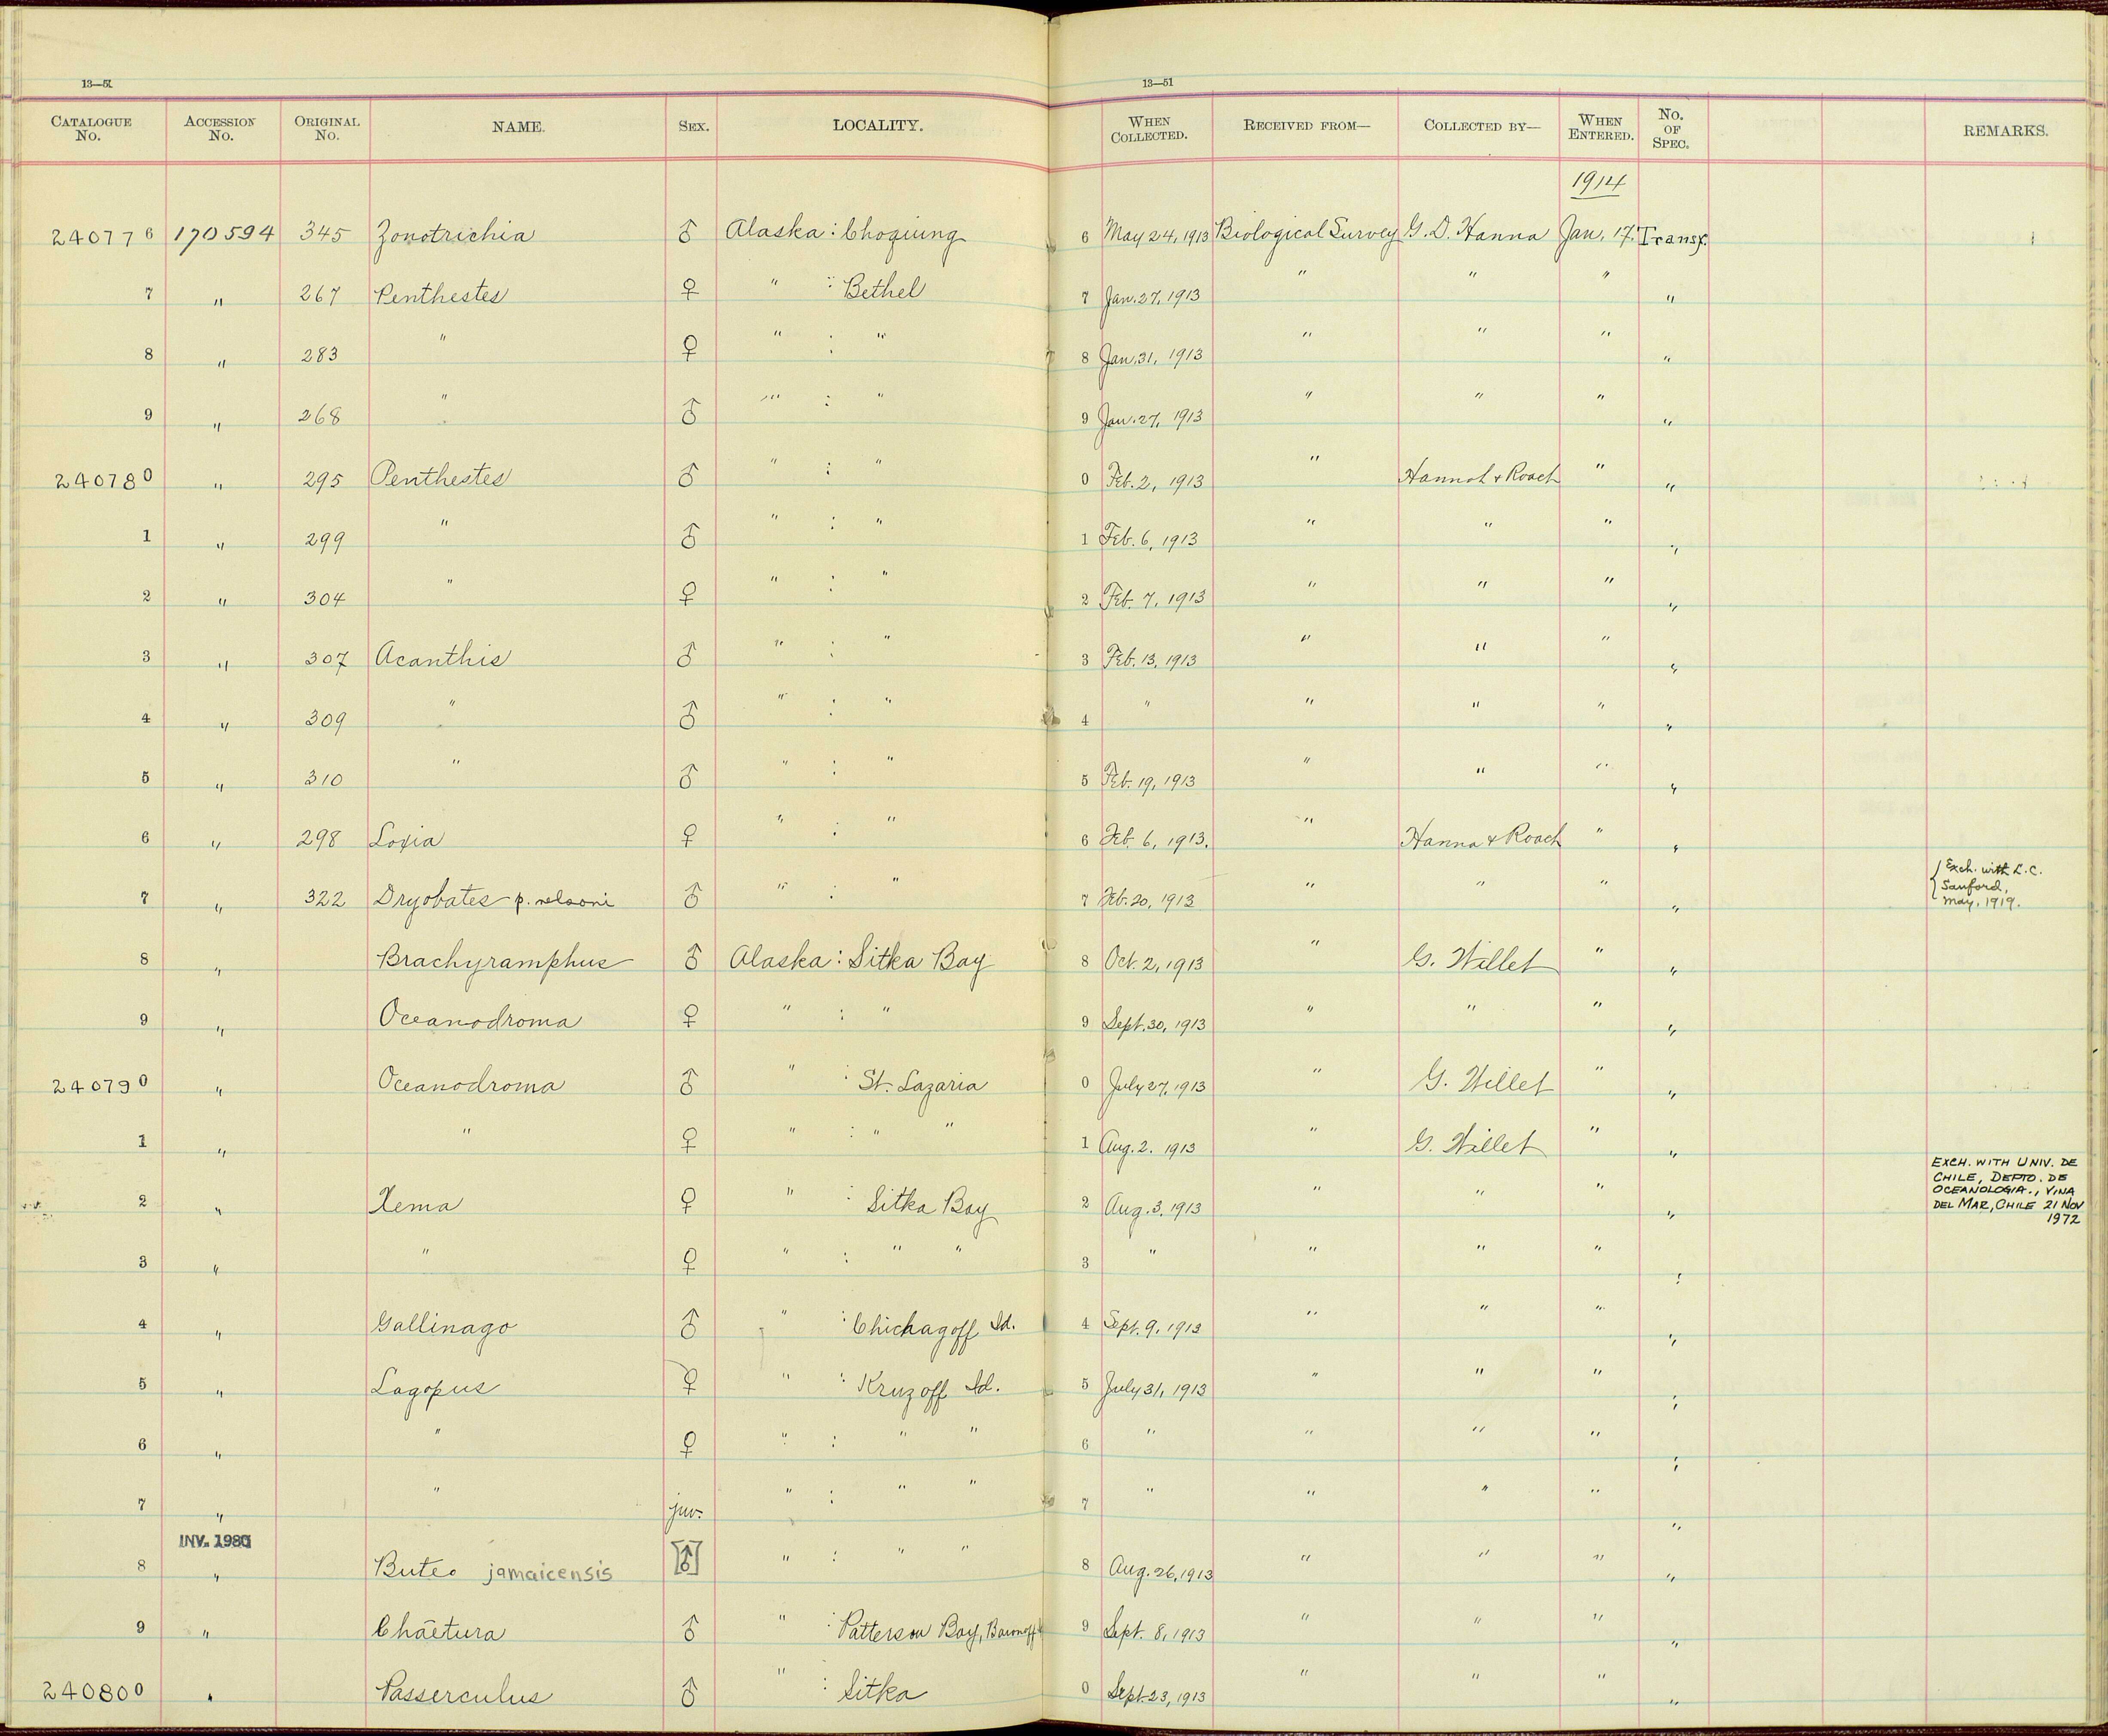 13—51
13—51
CATALOGUE No. ACCESSION No. ORIGINAL No. NAME. SEX. LOCALITY. WHEN COLLECTED. RECEIVED FROM— COLLECTED BY— WHEN ENTERED. No. OF SPEC. REMARKS.
1914
240776 170594 345 Zonotrichia ♂ Alaska : Choqiung 6 May 24, 1913 Biological Survey G. D. Hanna Jan. 17. Transf.
7 " 267 Penthestes ♀ " : Bethel 7 Jan. 27, 1913 " " " "
8 " 283 " ♀ " : " 8 Jan. 31, 1913 " " " "
9 " 268 " ♂ " : " 9 Jan. 27, 1913 " " " "
240780 " 295 Penthestes ♂ " : " 0 Feb. 2, 1913 " Hannah & Roach " "
1 " 299 " ♂ " : " 1 Feb. 6, 1913 " " " "
2 " 304 " ♀ " : " 2 Feb. 7, 1913 " " " "
3 " 307 Acanthis ♂ " : " 3 Feb. 13, 1913 " " " "
4 " 309 " ♂ " : " 4 " " " " "
5 " 310 " ♂ " : " 5 Feb. 19, 1913 " " " "
6 " 298 Loxia ♀ " : " 6 Feb. 6, 1913. " Hanna & Roach " "
7 " 322 Dryobates p. nelsoni ♂ " : " 7 Feb. 20, 1913 " " " " Exch. with L. C. Sanford, May, 1919.
8 " Brachyramphus ♂ Alaska : Sitka Bay 8 Oct. 2, 1913 " G. Willet " "
9 " Oceanodroma ♀ " : " 9 Sept. 30, 1913 " " " "
240790 " Oceanodroma ♂ " : St. Lazaria 0 July 27, 1913 " G. Willet " "
1 " " ♀ " : " " 1 Aug. 2. 1913 " G. Willet " "
2 " Xema ♀ " : Sitka Bay 2 Aug. 3, 1913 " " " " EXCH. WITH UNIV. DE CHILE, DEPTO. DE OCEANOLOGIA., VINA DEL MAR, CHILE 21 NOV 1972
3 " " ♀ " : " " 3 " " " " "
4 " Gallinago ♂ " : Chichagoff Id. 4 Sept. 9, 1913 " " " "
5 " Lagopus ♀ " : Kruzoff Id. 5 July 31, 1913 " " " "
6 " " ♀ " : " " 6 " " " " "
7 " " juv. " : " " 7 " " " " "
INV. 1980
8 " Buteo jamaicensis [♂] " : " " 8 Aug. 26, 1913 " " " "
9 " Chaetura ♂ " : Patterson Bay, Baronoff 9 Sept. 8, 1913 " " " "
240800 " Passerculus ♂ " : Sitka 0 Sept. 23, 1913 " " " "